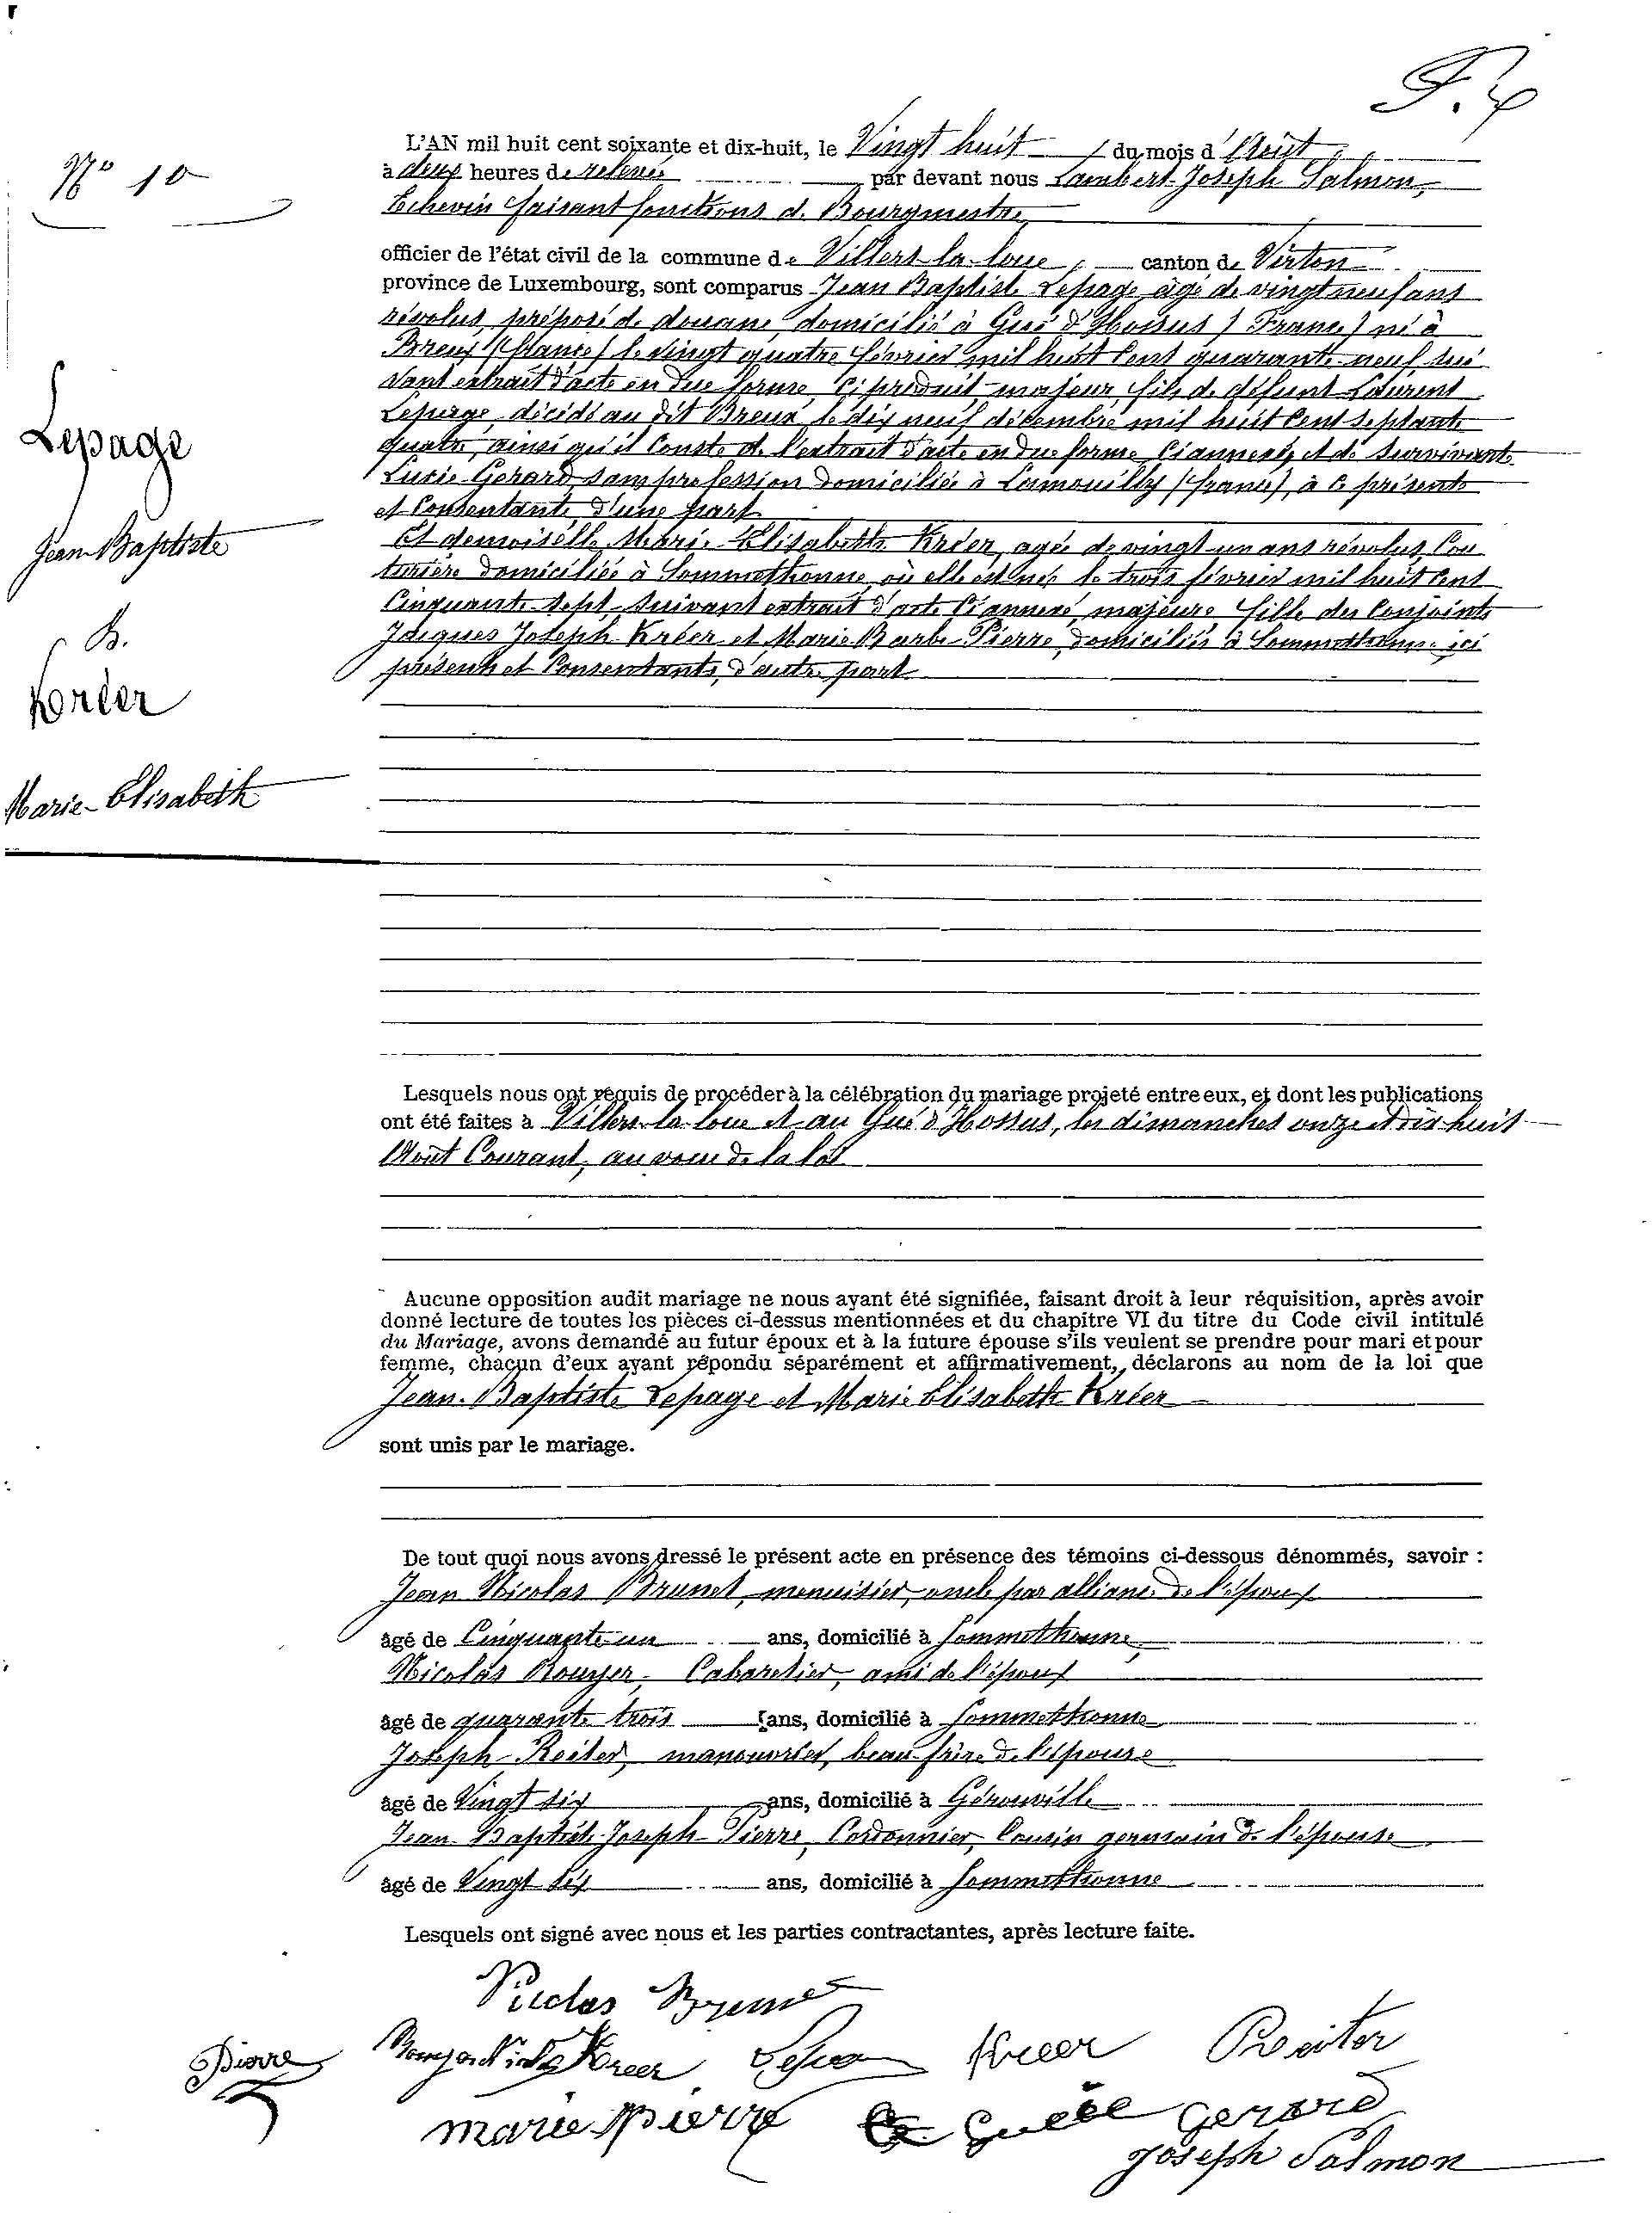 N° 10
L'AN mil huit cent soixante et dix-huit, le Vingt huit du mois d'Août
à deux heures de relevée par devant nous Lambert-Joseph Salmon,
Echevin faisant fonctions de Bourgmestre,
officier de l'état civil de la commune de Villers-la-loue, canton de Virton
province de Luxembourg, sont comparus Jean Baptiste Lepage âgé de vingt neuf ans
révolus, préposé de douane domicilié à Gué d'Hossus (France) né à
Breux (france) le vingt quatre février mil huit Cent quarante-neuf, sui
vant extrait d'acte en due forme, Ci produit, majeur, fils de défunt Laurent
Lepage, décédé au dit Breux, le dix neuf décembre mil huit Cent septante
quatre, ainsi qu'il Conste de l'extrait d'acte en due forme Ciannexé, et de survivante
Lucie Gerard, sans profession domiciliée à Lamouilly (france), à ce présente
et Consentante, d'une part
Et demoiselle Marie-Elisabeth Kréer, agée de vingt-un ans révolus, Cou
turière domiciliée à Sommethonne, où elle est née le trois février mil huit Cent
Cinquante-sept, suivant extrait d'acte Ciannexé, majeure fille des Conjoints
Jacques Joseph Kréer et Marie Barbe Pierre, domiciliés à Sommethonne ici
présents et Consentants, d'autre part
Lepage
Jean-Baptiste
&.
Kréer
Marie-Elisabeth
Lesquels nous ont requis de procéder à la célébration du mariage projeté entre eux, et dont les publications
ont été faites à Villers-la-loue et au Gué d'Hossus, les dimanches onze et dix-huit
Août Courant, au vœu de la loi
Aucune opposition audit mariage ne nous ayant été signifiée, faisant droit à leur réquisition, après avoir
donné lecture de toutes les pièces ci-dessus mentionnées et du chapitre VI du titre du Code civil intitulé
du Mariage, avons demandé au futur époux et à la future épouse s'ils veulent se prendre pour mari et pour
femme, chacun d'eux ayant répondu séparément et affirmativement, déclarons au nom de la loi que
Jean-Baptiste Lepage et Marie Elisabeth Kréer
sont unis par le mariage.
De tout quoi nous avons dressé le présent acte en présence des témoins ci-dessous dénommés, savoir :
Jean Nicolas Brunet, menuisier, oncle par alliance de l'époux
âgé de Cinquante-un ans, domicilié à Sommethonne,
Nicolas Rouyer, Cabaretier, ami de l'époux
âgé de quarante trois ans, domicilié à Sommethonne
Joseph Reiter, manouvrier, beau-frère de l'épouse
âgé de Vingt six ans, domicilié à Gérouville
Jean-Baptiste Joseph Pierre, Cordonnier, Cousin germain de l'épouse
âgé de Vingt six ans, domicilié à Sommethonne
Lesquels ont signé avec nous et les parties contractantes, après lecture faite.
Nicolas Brunet
Pierre Kreer Kreer Reiter
marie pierre Gerard
Joseph Salmon